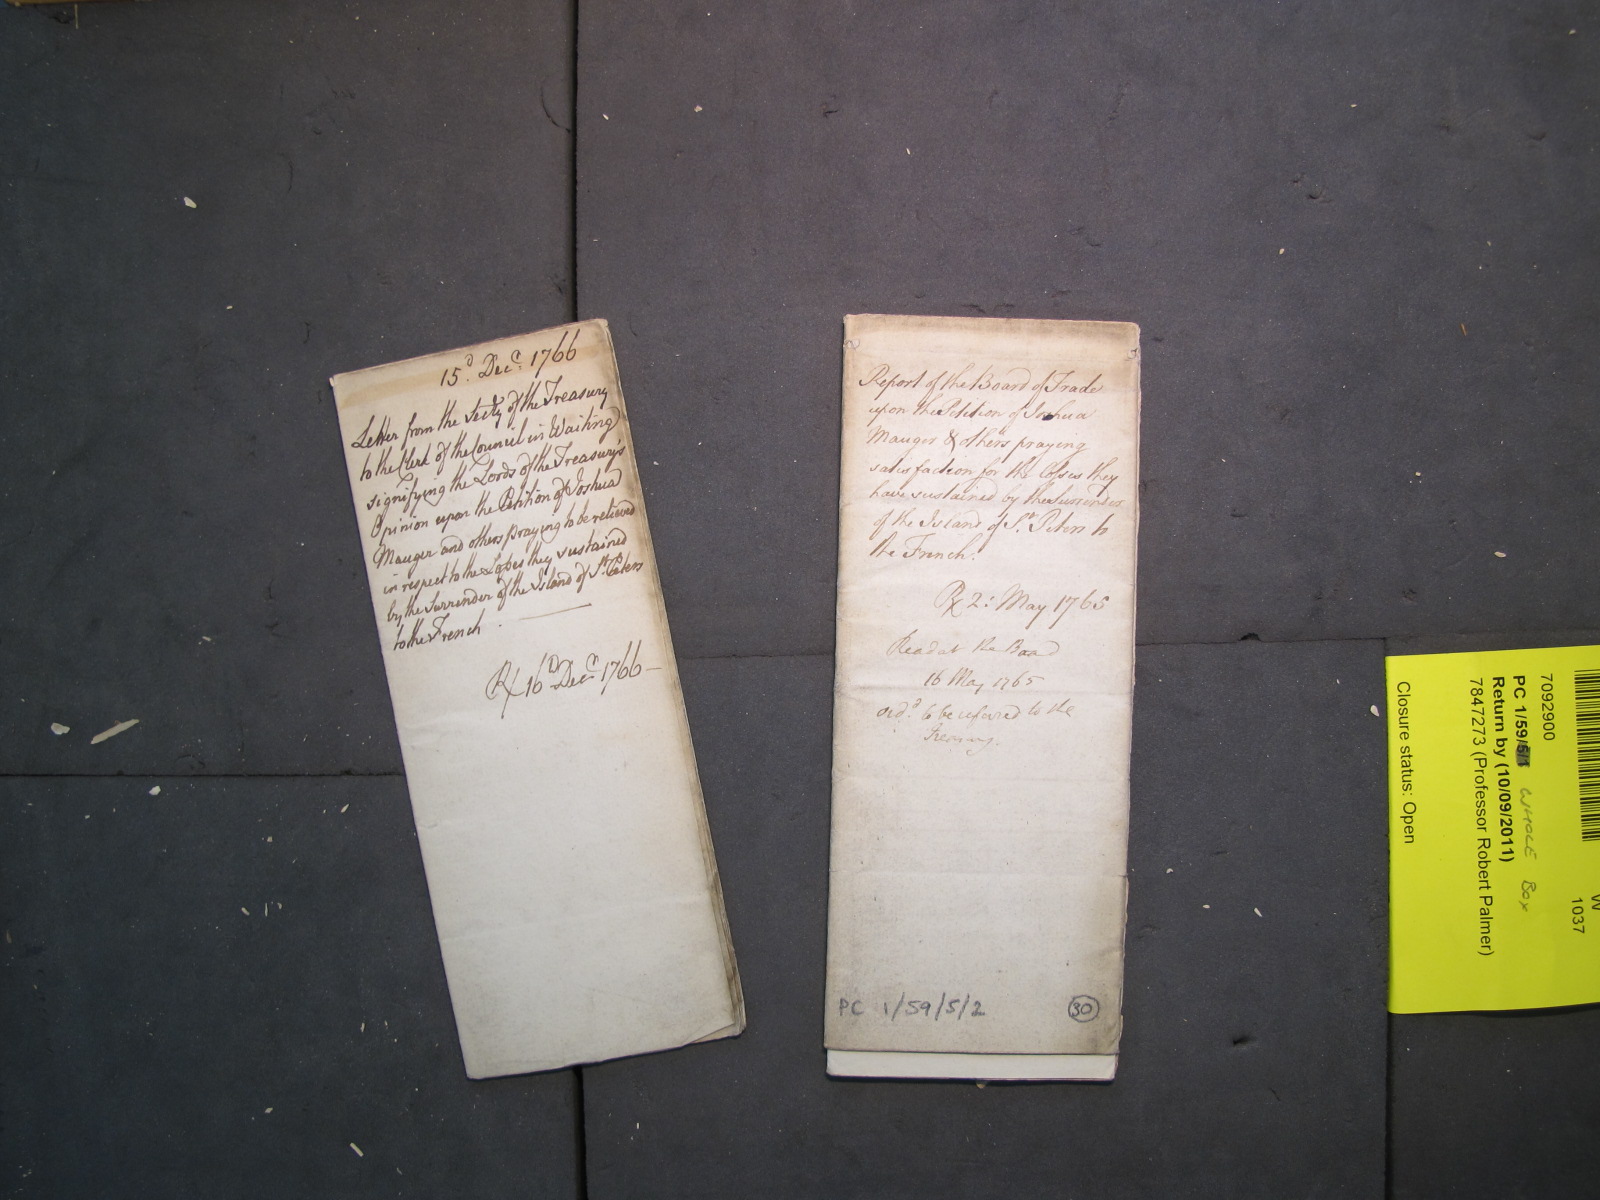 15.^d Dec.^r 1766
Letter from the Secty of the Treasury
to the Clerk of the Council in Waiting
signifying the Lords of the Treasury's
Opinion upon the Petition of Joshua
Mauger and others praying to be relieved
in respect to the Losses they sustained
by the Surrender of the Island of S.^t Peters
to the French.
Rx 16^D Dec^r 1766
Report of the Board of Trade
upon the Petition of Joshua
Mauger & others praying
satisfaction for the losses they
have sustained by the Surrender
of the Island of S.^t Peters to
the French.
Rx 2: May 1765
Read at the Board
16 May 1765
ord.^d to be referred to the
Treasury.
PC 1/59/5/2
30
W
1037
7092900
PC 1/59/5/1 WHOLE BOX
Return by (10/09/2011)
7847273 (Professor Robert Palmer)
Closure status: Open